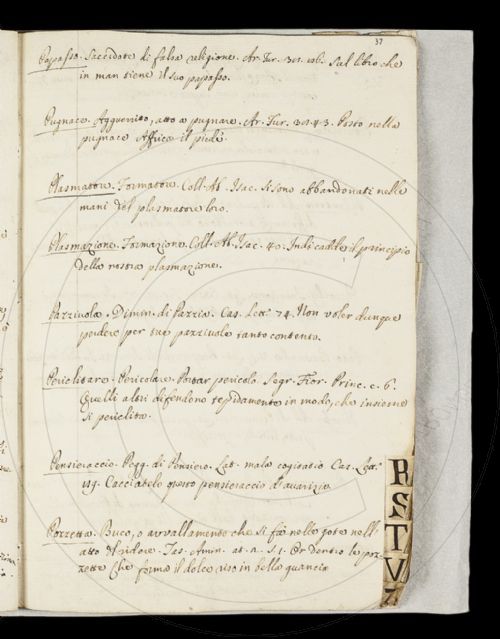 37
Papasso. Sacerdote di falsa religione. Ar. Fur. Sul libro che
in man tiene il suo papasso.
Pugnace. Agguerrito, atto a pugnare. Ar. Fur. Posto nella
pugnace Affrica il piede.
Plasmatore. Formatore. Coll. Ab. Isac. Si sono abbandonati nelle
mani del plasmatore loro.
Plasmazione. Formazione. Coll. Ab. Isac. 40. Indi cadde il principio
della nostra plasmazione.
Pazziuola. Dimin. di Pazzia. Cas. Lett. 74. Non voler dunque
perdere per tue pazziuole tanto contento.
Periclitare. Pericolare. Portar pericolo. Segr. Fior. Princ. c. 6.
Quelli altri difendono tepidamente in modo, che insieme
si periclita.
Pensieraccio. Pegg. di Pensiero. Lat. mala cogitatio. Cas. Lett.
119. Cacciatelo questo pensieraccio d'avarizia
Pozzetta. Buco, o avvallamento che si fa nelle gote nell'
atto di ridere. Tas. Amin. at. 2. s. 1. Or dentro le poz-
zette Che forma il dolce riso in bella guancia
R
S
T
V
Z